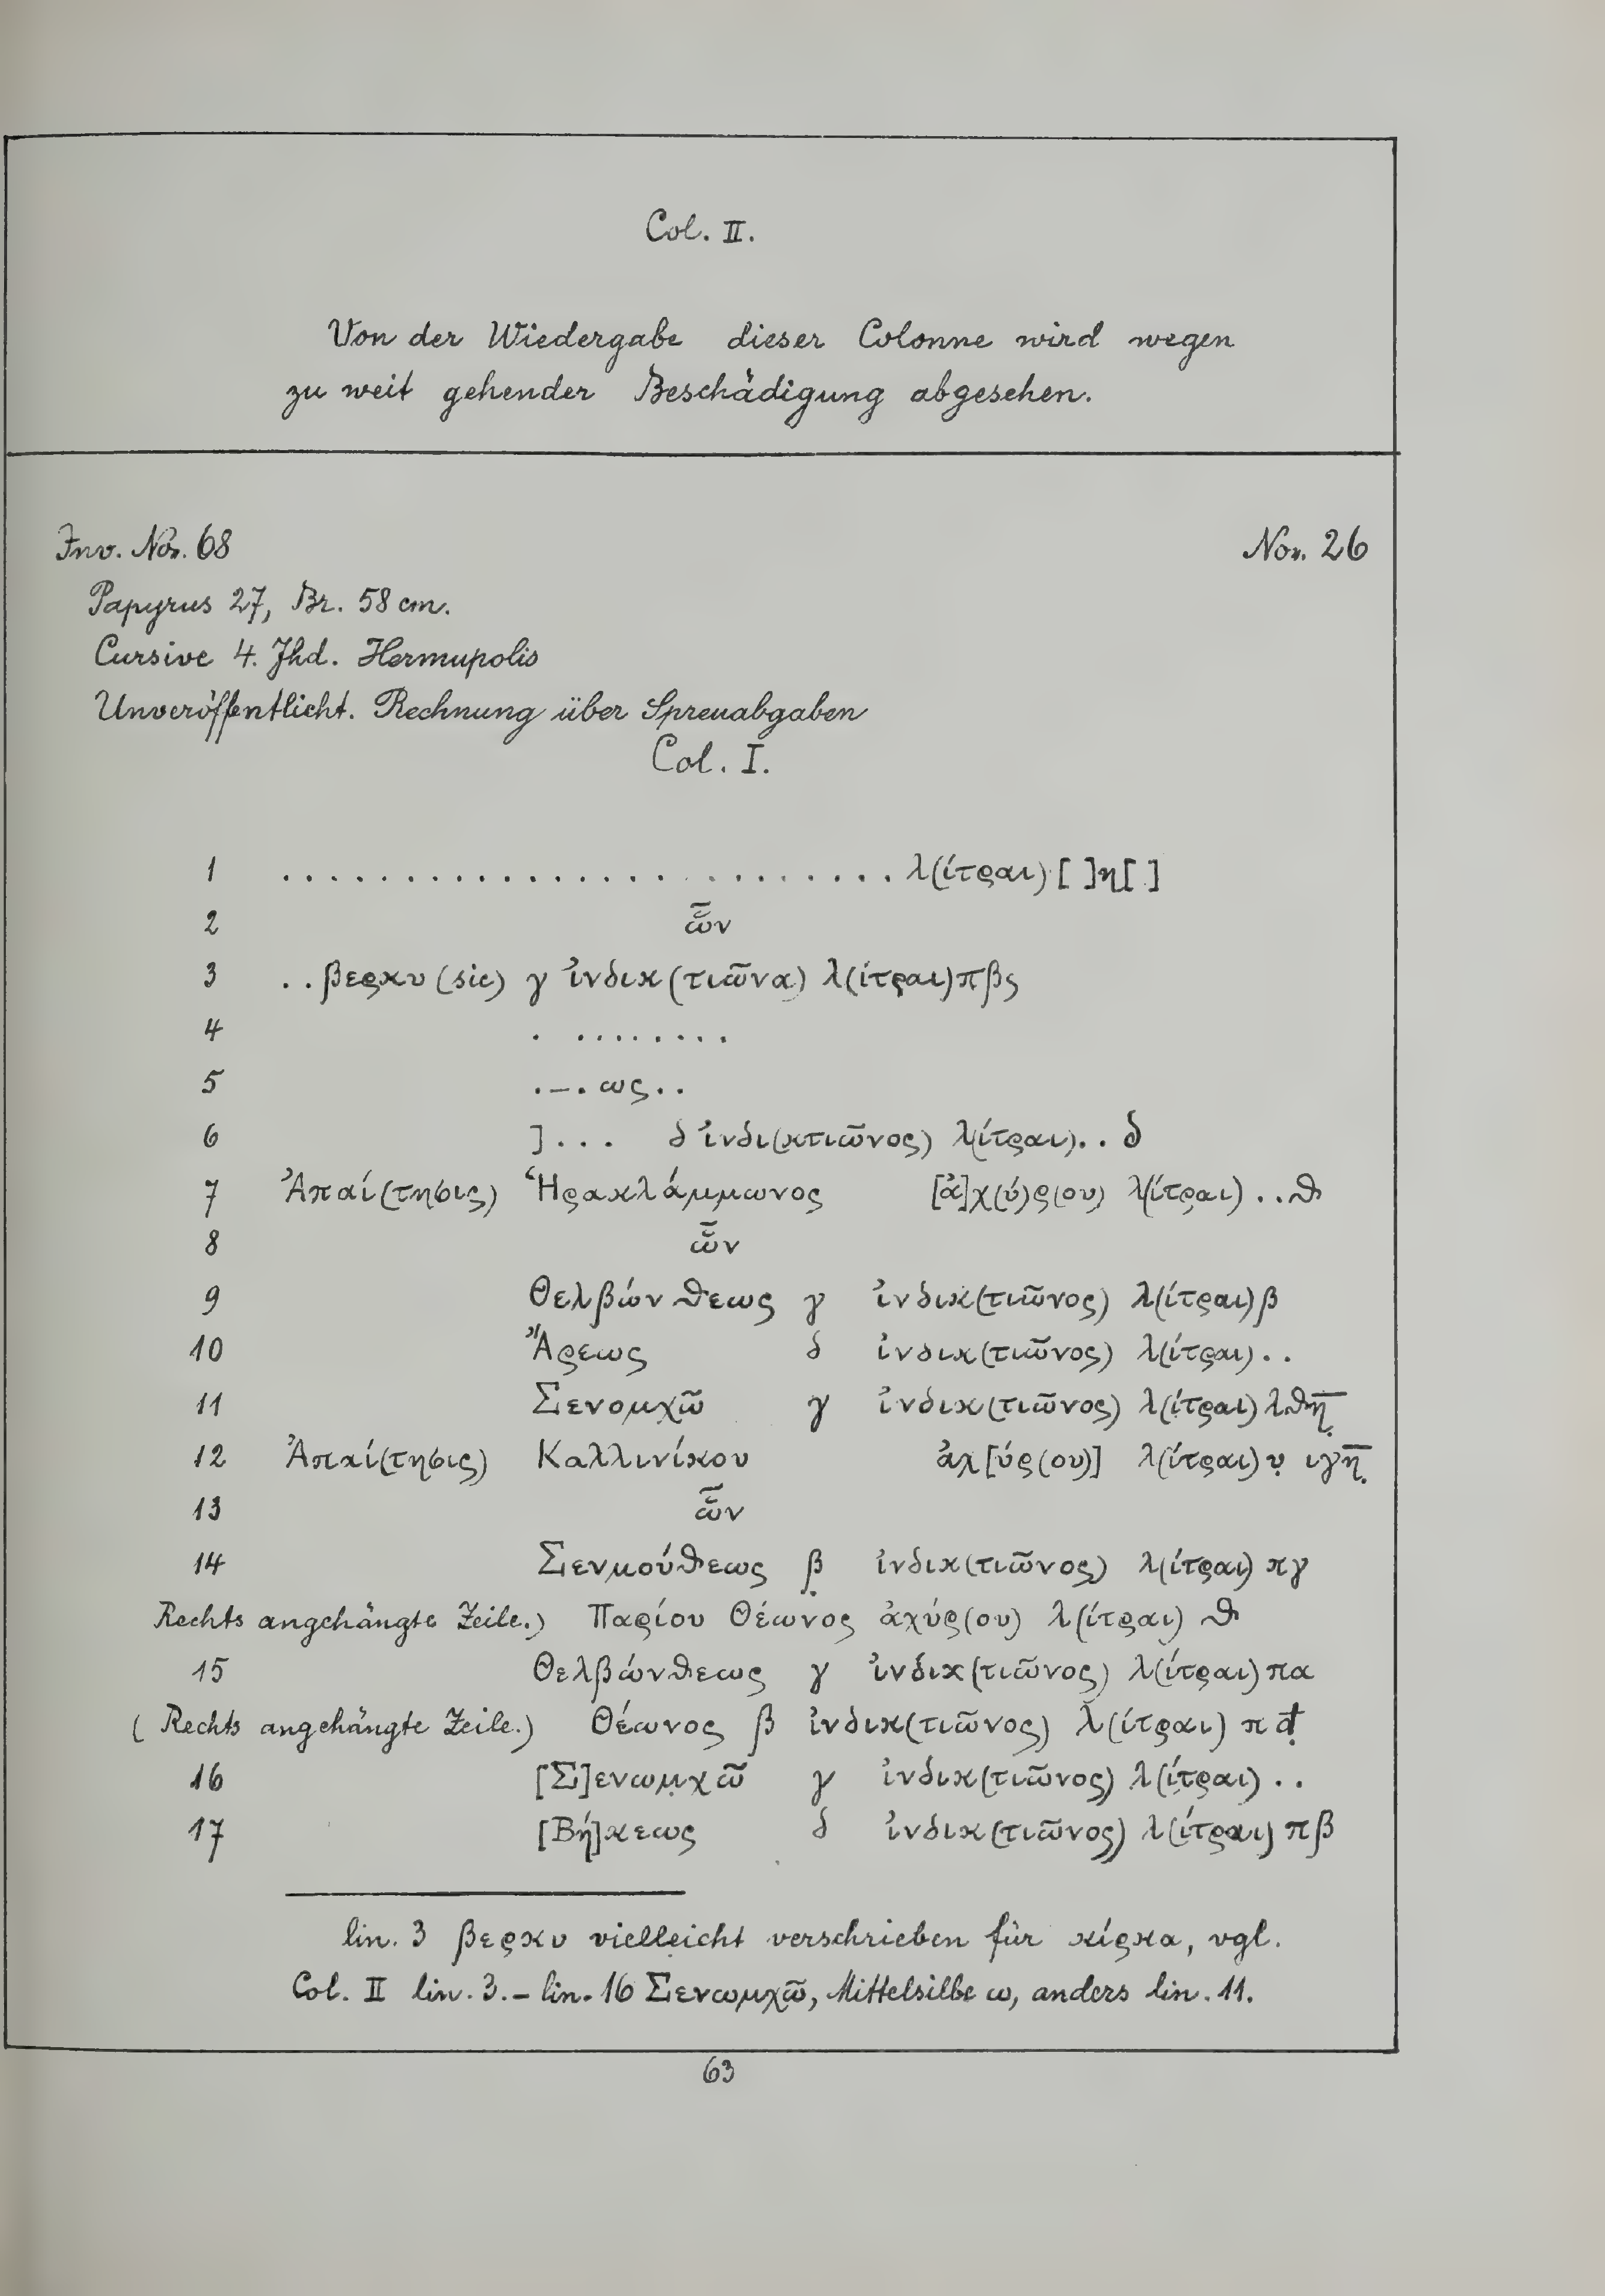 Col. II.
Von der Wiedergabe dieser Colonne wird wegen
zu weit gehender Beschädigung abgesehen.
Inv. No. 68 No. 26
Papyrus 27, Br. 58 cm.
Cursive 4. Jhd. Hermupolis
Unveröffentlicht. Rechnung über Spreuabgaben
Col. I.
1 . . . . . . . . . . . . . . . . . . . . . . . . . λ(ίτραι) [ ]η[ ]
2 ὧ̄ν
3 . . βερκυ (sic) γ ἰνδικ(τιῶνα) λ(ίτραι) πβς
4 . . . . . . . . .
5 . – . ως . .
6 ] . . . δ ἰνδι(κτιῶνος) λ(ίτραι) . . δ
7 Ἀπαί(τησις) Ἡρακλάμμωνος [ἀ]χ(ύ)ρ(ου) λ(ίτραι) . . θ
8 ὧ̄ν
9 Θελβώνθεως γ ἰνδικ(τιῶνος) λ(ίτραι) β
10 Ἄρεως δ ἰνδικ(τιῶνος) λ(ίτραι) . .
11 Σενομχῶ γ ἰνδικ(τιῶνος) λ(ίτραι) λθη̣̄
12 Ἀπαί(τησις) Καλλινίκου ἀχ[ύρ(ου)] λ(ίτραι) υ̣ ιγη̣̄
13 ὧ̄ν
14 Σενμούθεως β̣ ἰνδικ(τιῶνος) λ(ίτραι) κγ
Rechts angehängte Zeile.) Παρίου Θέωνος ἀχύρ(ου) λ(ίτραι) θ
15 Θελβώνθεως γ ἰνδικ(τιῶνος) λ(ίτραι) πα
( Rechts angehängte Zeile.) Θέωνος β ἰνδικ(τιῶνος) λ(ίτραι) π
16 [Σ]ενωμ̣χῶ γ ἰνδικ(τιῶνος) λ(ίτραι) . .
17 [Βή]κεως δ ἰνδικ(τιῶνος) λ(ίτραι) πβ
lin. 3 βερκυ vielleicht verschrieben für κίρκα, vgl.
Col. II lin. 3. – lin. 16 Σενωμχῶ, Mittelsilbe ω, anders lin. 11.
63